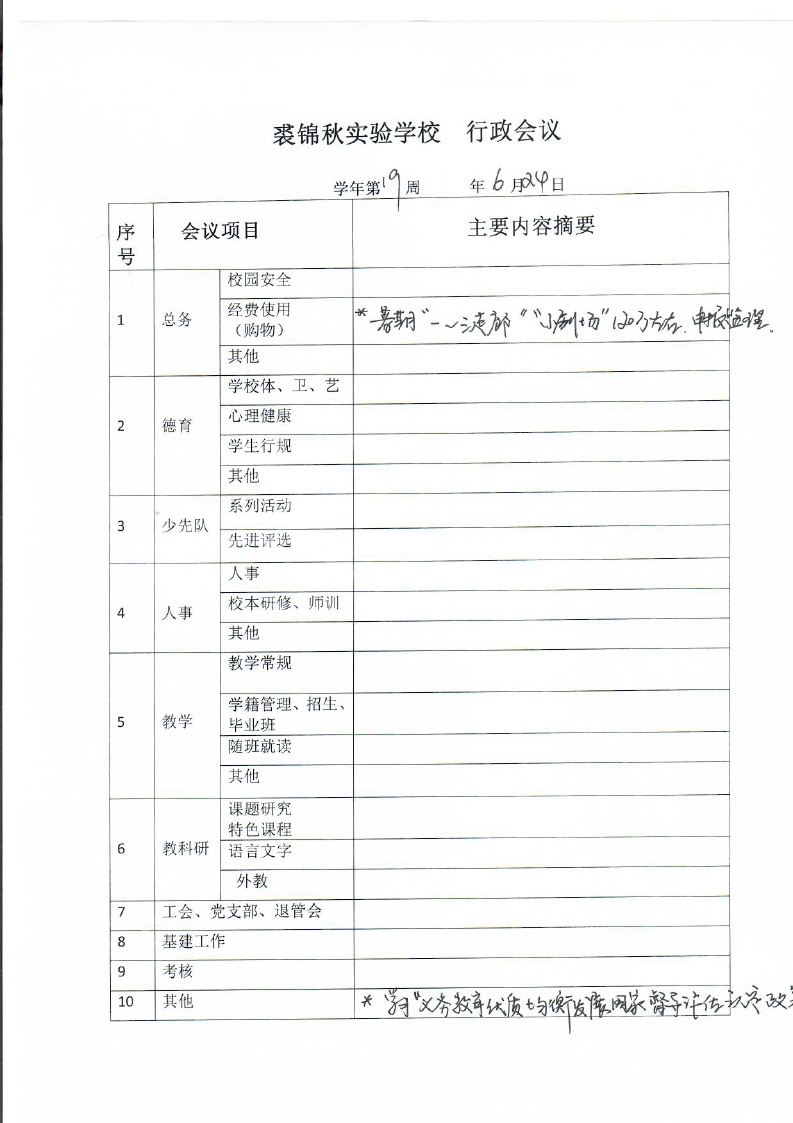 裘锦秋实验学校 行政会议
学年第19周 年6月24日
序号 会议项目 主要内容摘要
1 总务 校园安全
经费使用
（购物） *暑期“一~三走廊”“小剧场”120万左右、申报监理、
其他
2 德育 学校体、卫、艺
心理健康
学生行规
其他
3 少先队 系列活动
先进评选
4 人事 人事
校本研修、师训
其他
5 教学 教学常规
学籍管理、招生、
毕业班
随班就读
其他
6 教科研 课题研究
特色课程
语言文字
外教
7 工会、党支部、退管会
8 基建工作
9 考核
10 其他 *学习“义务教育优质均衡发展国家督导评估认定政